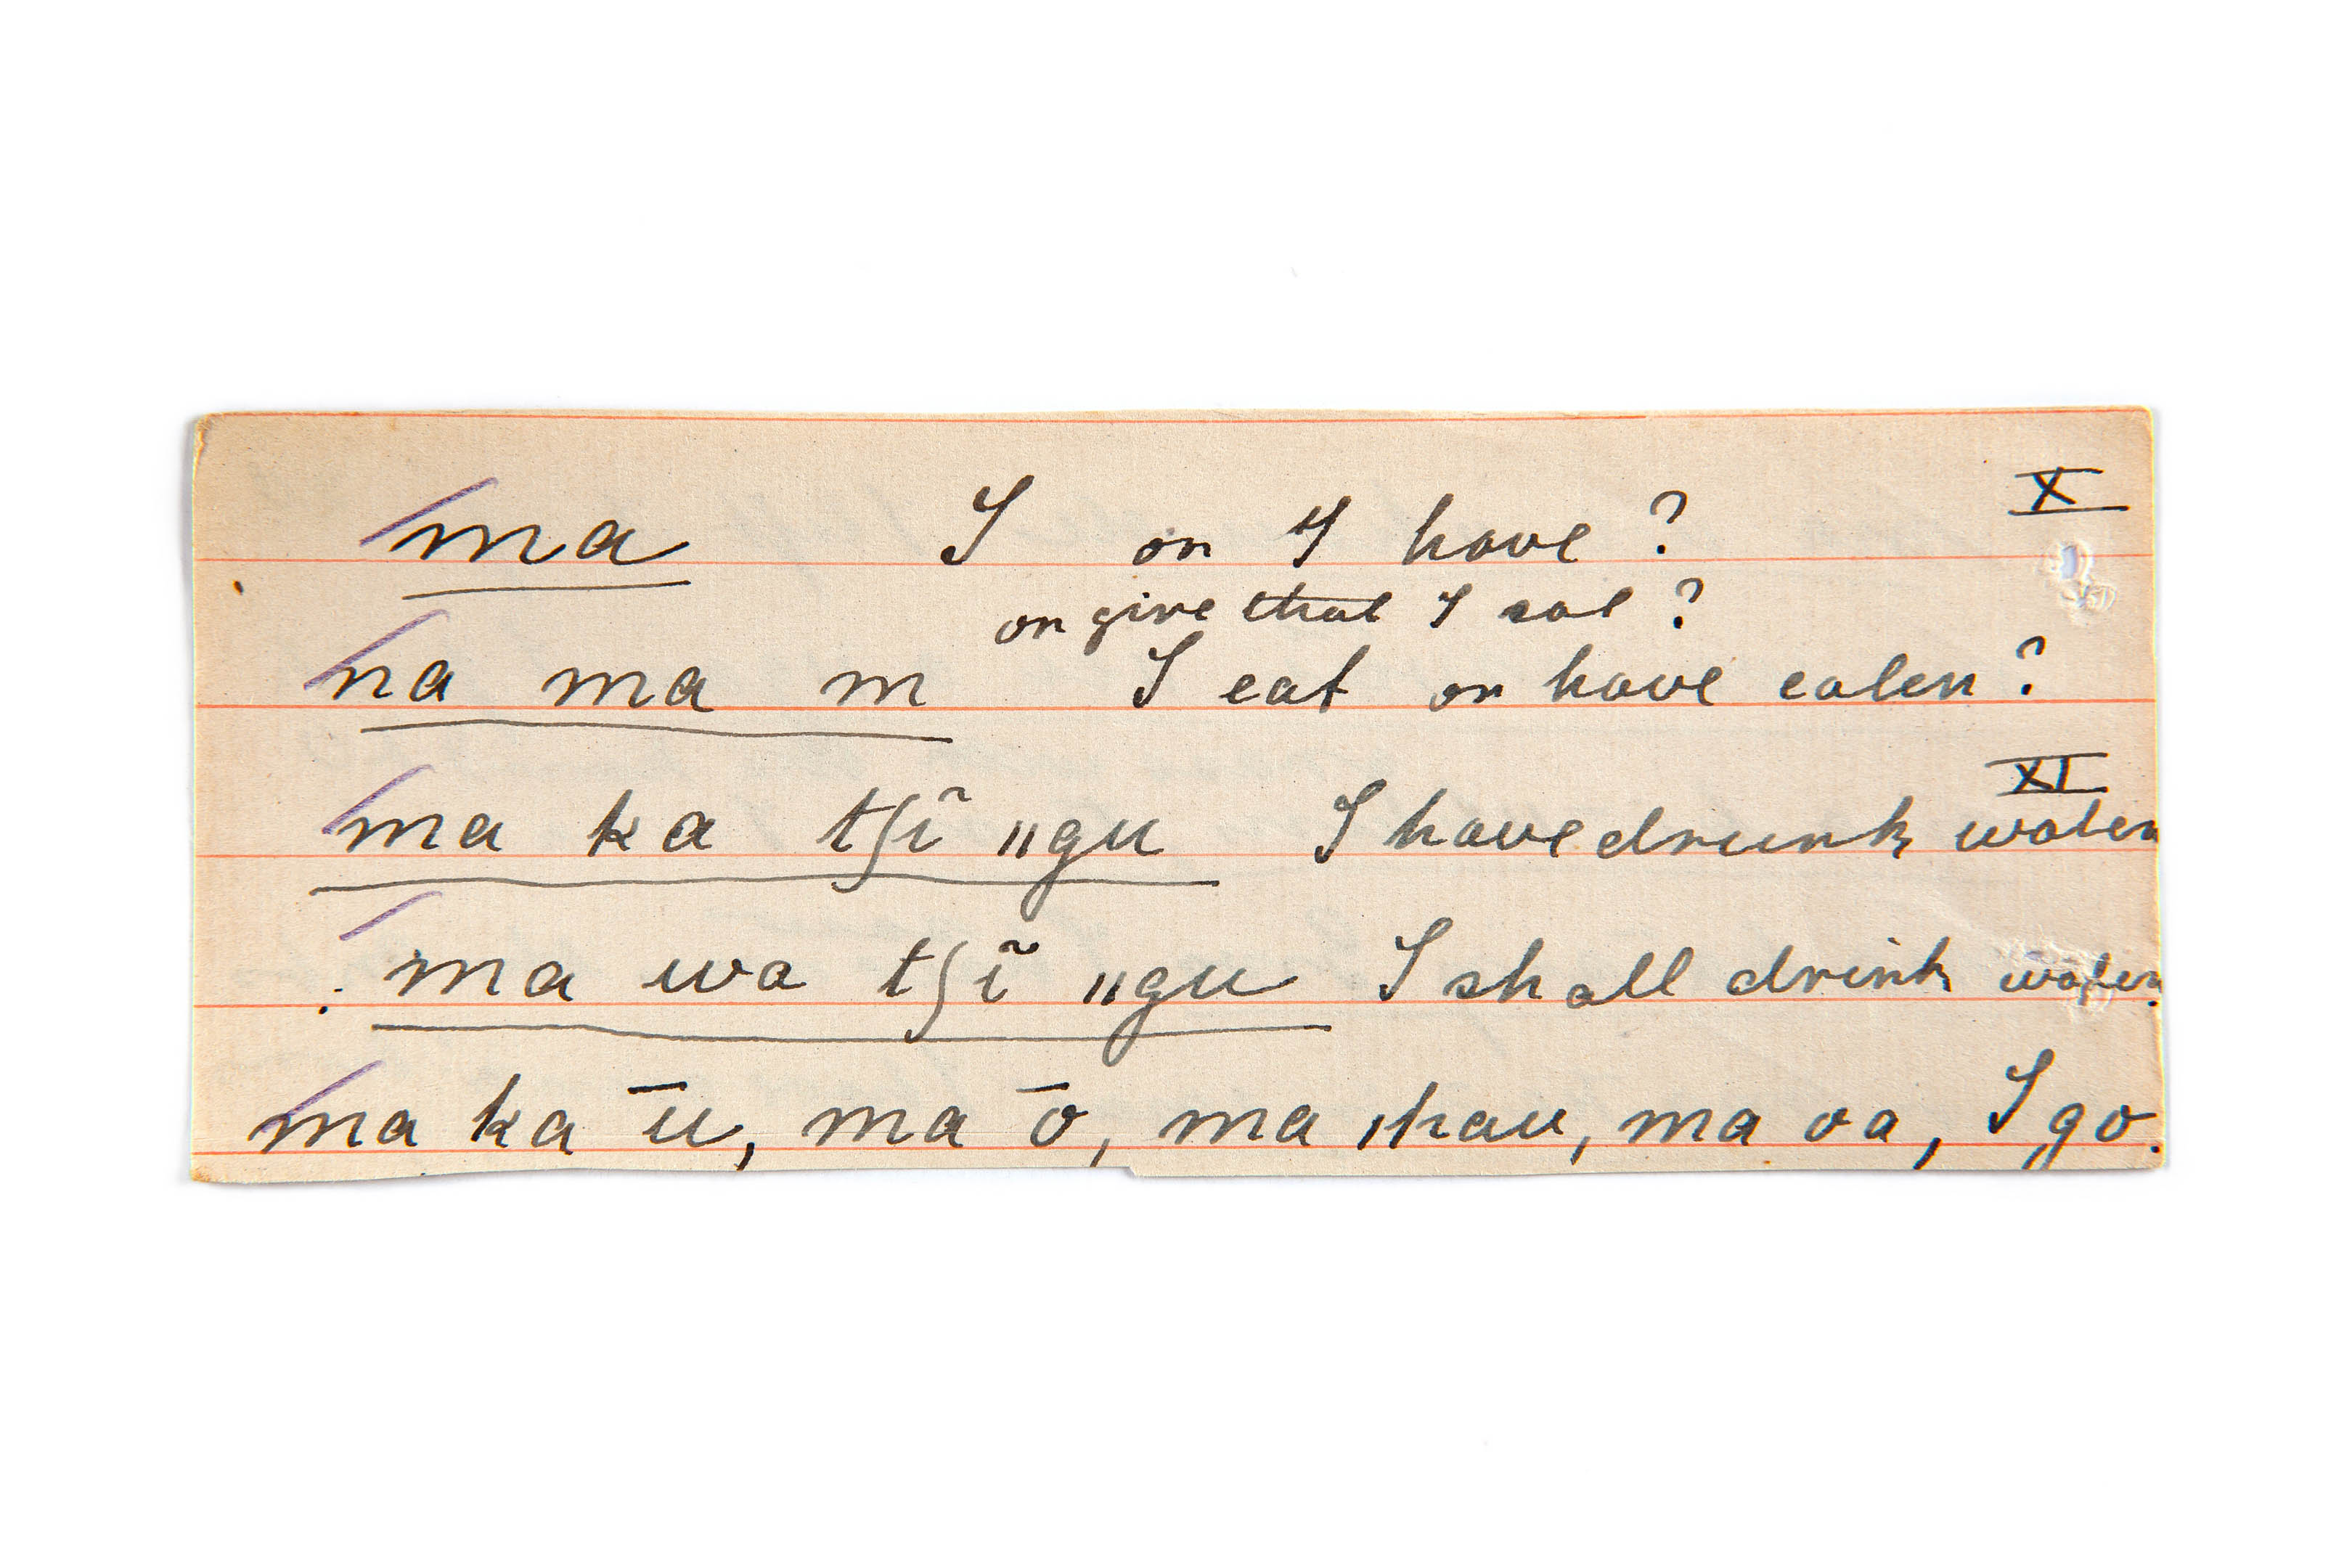 ma I or I have? X
or give that I eat?
na ma m I eat or have eaten?
XI
ma ka tʃĩ ǁgu I have drunk water
ma wa tʃĩ ǁgu I shall drink water.
ma ka ū, ma ō, ma ǀhau, ma oa, I go.